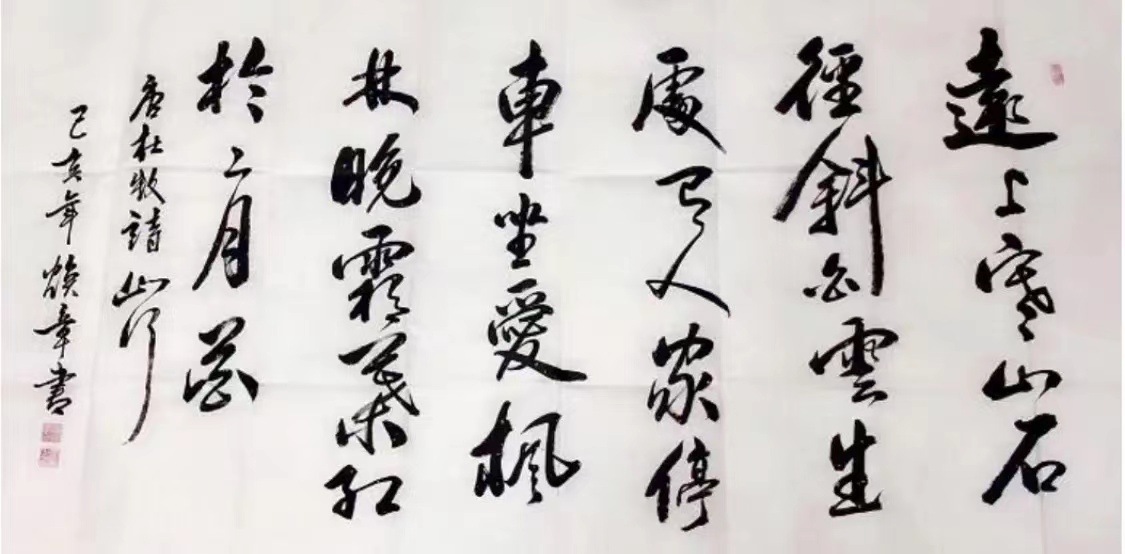 遠上寒山石
徑斜白雲生
處有人家停
車坐愛楓
林晚霜葉紅
於二月花
唐杜牧詩山行
己亥年煥章書